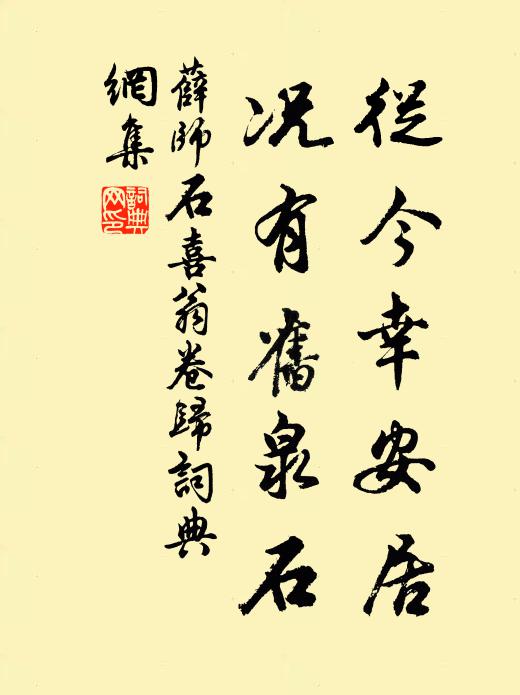 從今幸安居
况有舊泉石
薛師石喜翁卷歸詞典
網集
詞典網印